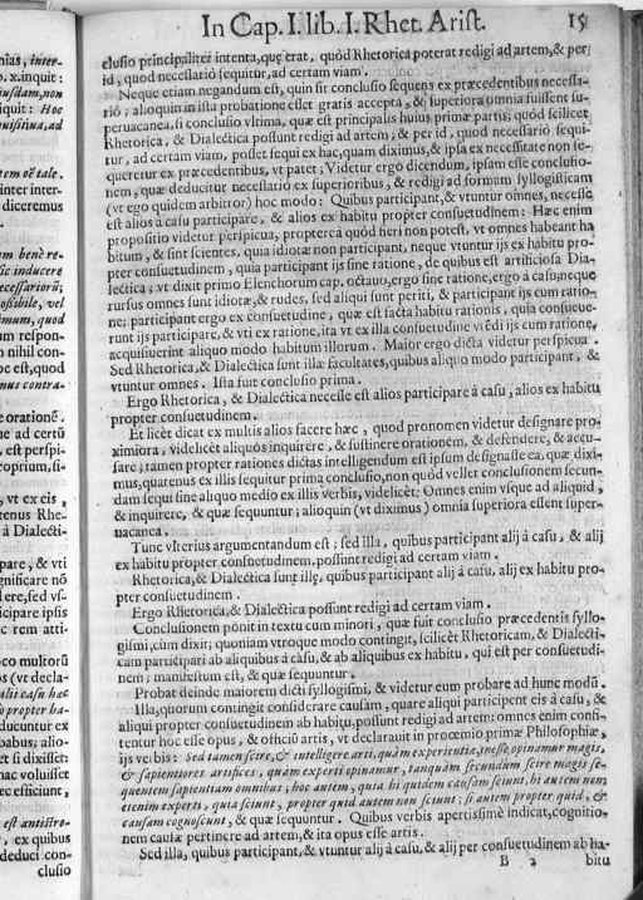 nias, inter-
o. x. inquit:
iusdam, non
iquit: Hoc
quisitiua, ad
tem oẽ tale.
inter inter-
diceremus
em benè re-
sic inducere
ecessariorũ;
ossibile, vel
imum, quod
um respon-
o nihil con-
oc est, quod
mus contra-
e orationẽ.
ue ad certũ
, est perspi-
coprium, si-
, vt ex eis,
tenus Rhe-
à Dialecti-
pare, & vti
gnificare nõ
dere, sed vs-
icipare ipsis
c rem atti-
oco multorũ
s (vt decla-
alij casu hæc
o propter ha-
ducuntur ex
babus; alio-
et si dixisset:
nac voluisset
ec efficiunt,
est antistro-
, ex quibus
deduci con-
clusio
In Cap. I. lib. I. Rhet. Arist. 15
clusio principaliter intenta, quę erat, quòd Rhetorica poterat redigi ad artem, & per
id, quod necessariò sequitur, ad certam viam.
Neque etiam negandum est, quin sit conclusio sequens ex præcedentibus necessa-
riò; alioquin in ista probatione esset gratis accepta, & superiora omnia fuissent su-
peruacanea, si conclusio vltima, quæ est principalis huius primæ partis; quòd scilicet
Rhetorica, & Dialectica possunt redigi ad artem; & per id, quod necessariò sequi-
tur, ad certam viam, posset sequi ex hac, quam diximus, & ipsa ex necessitate non se-
queretur ex præcedentibus, vt patet; Videtur ergo dicendum, ipsam esse conclusio-
nem, quæ deducitur necessariò ex superioribus, & redigi ad formam syllogisticam
(vt ego quidem arbitror) hoc modo: Quibus participant, & vtuntur omnes, necesse
est alios à casu participare, & alios ex habitu propter consuetudinem: Hæc enim
propositio videtur perspicua, proptereà quòd fieri non potest, vt omnes habeant ha
bitum, & sint scientes, quia idiotæ non participant, neque vtuntur ijs ex habitu pro-
pter consuetudinem, quia participant ijs sine ratione, de quibus est artificiosa Dia-
lectica; vt dixit primo Elenchorum cap. octauo, ergo sine ratione, ergo à casu, neque
rursus omnes sunt idiotæ, & rudes, sed aliqui sunt periti, & participant ijs cum ratio-
ne; participant ergo ex consuetudine, quæ est facta habitu rationis, quia consueue-
runt ijs participare, & vti ex ratione, ita vt ex illa consuetudine vtẽdi ijs cum ratione,
acquisiuerint aliquo modo habitum illorum. Maior ergo dicta videtur perspicua.
Sed Rhetorica, & Dialectica sunt illæ facultates, quibus aliquo modo participant, &
vtuntur omnes. Ista fuit conclusio prima.
Ergo Rhetorica, & Dialectica necesse est alios participare à casu, alios ex habitu
propter consuetudinem.
Et licèt dicat ex multis alios facere hæc, quod pronomen videtur designare pro-
ximiora, videlicèt aliquos inquirere, & sustinere orationem, & defendere, & accu-
sare; tamen propter rationes dictas intelligendum est ipsum designasse ea, quæ dixi-
mus, quatenus ex illis sequitur prima conclusio, non quòd vellet conclusionem secun-
dam sequi sine aliquo medio ex illis verbis, videlicèt: Omnes enim vsque ad aliquid,
& inquirere, & quæ sequuntur; alioquin (vt diximus) omnia superiora essent super-
uacanea.
Tunc vlterius argumentandum est; sed illa, quibus participant alij à casu, & alij
ex habitu propter consuetudinem, possunt redigi ad certam viam.
Rhetorica, & Dialectica sunt illę, quibus participant alij à casu, alij ex habitu pro-
pter consuetudinem.
Ergo Rhetorica, & Dialectica possunt redigi ad certam viam.
Conclusionem ponit in textu cum minori, quæ fuit conclusio præcedentis syllo-
gismi, cùm dixit; quoniam vtroque modo contingit, scilicèt Rhetoricam, & Dialecti-
cam participari ab aliquibus à casu, & ab aliquibus ex habitu, qui est per consuetudi-
nem; manifestum est, & quæ sequuntur.
Probat deinde maiorem dicti syllogismi, & videtur eum probare ad hunc modũ.
Illa, quorum contingit considerare causam, quare aliqui participent eis à casu, &
aliqui propter consuetudinem ab habitu, possunt redigi ad artem: omnes enim confi-
tentur hoc esse opus, & officiũ artis, vt declarauit in proœmio primæ Philosophiæ,
ijs verbis: Sed tamen scire, & intelligere arti, quàm experientiæ, inesse opinamur magis,
& sapientiores artifices, quàm expertos opinamur, tanquàm secundum scire magis se-
quentem sapientiam omnibus; hoc autem, quia hi quidem causam sciunt, hi autem non;
etenim experti, quia sciunt, propter quid autem non sciunt; si autem propter quid, &
causam cognoscunt, & quæ sequuntur. Quibus verbis apertissimè indicat, cognitio-
nem causæ pertinere ad artem, & ita opus esse artis.
Sed illa, quibus participant, & vtuntur alij à casu, & alij per consuetudinem ab ha-
B 2 bitu